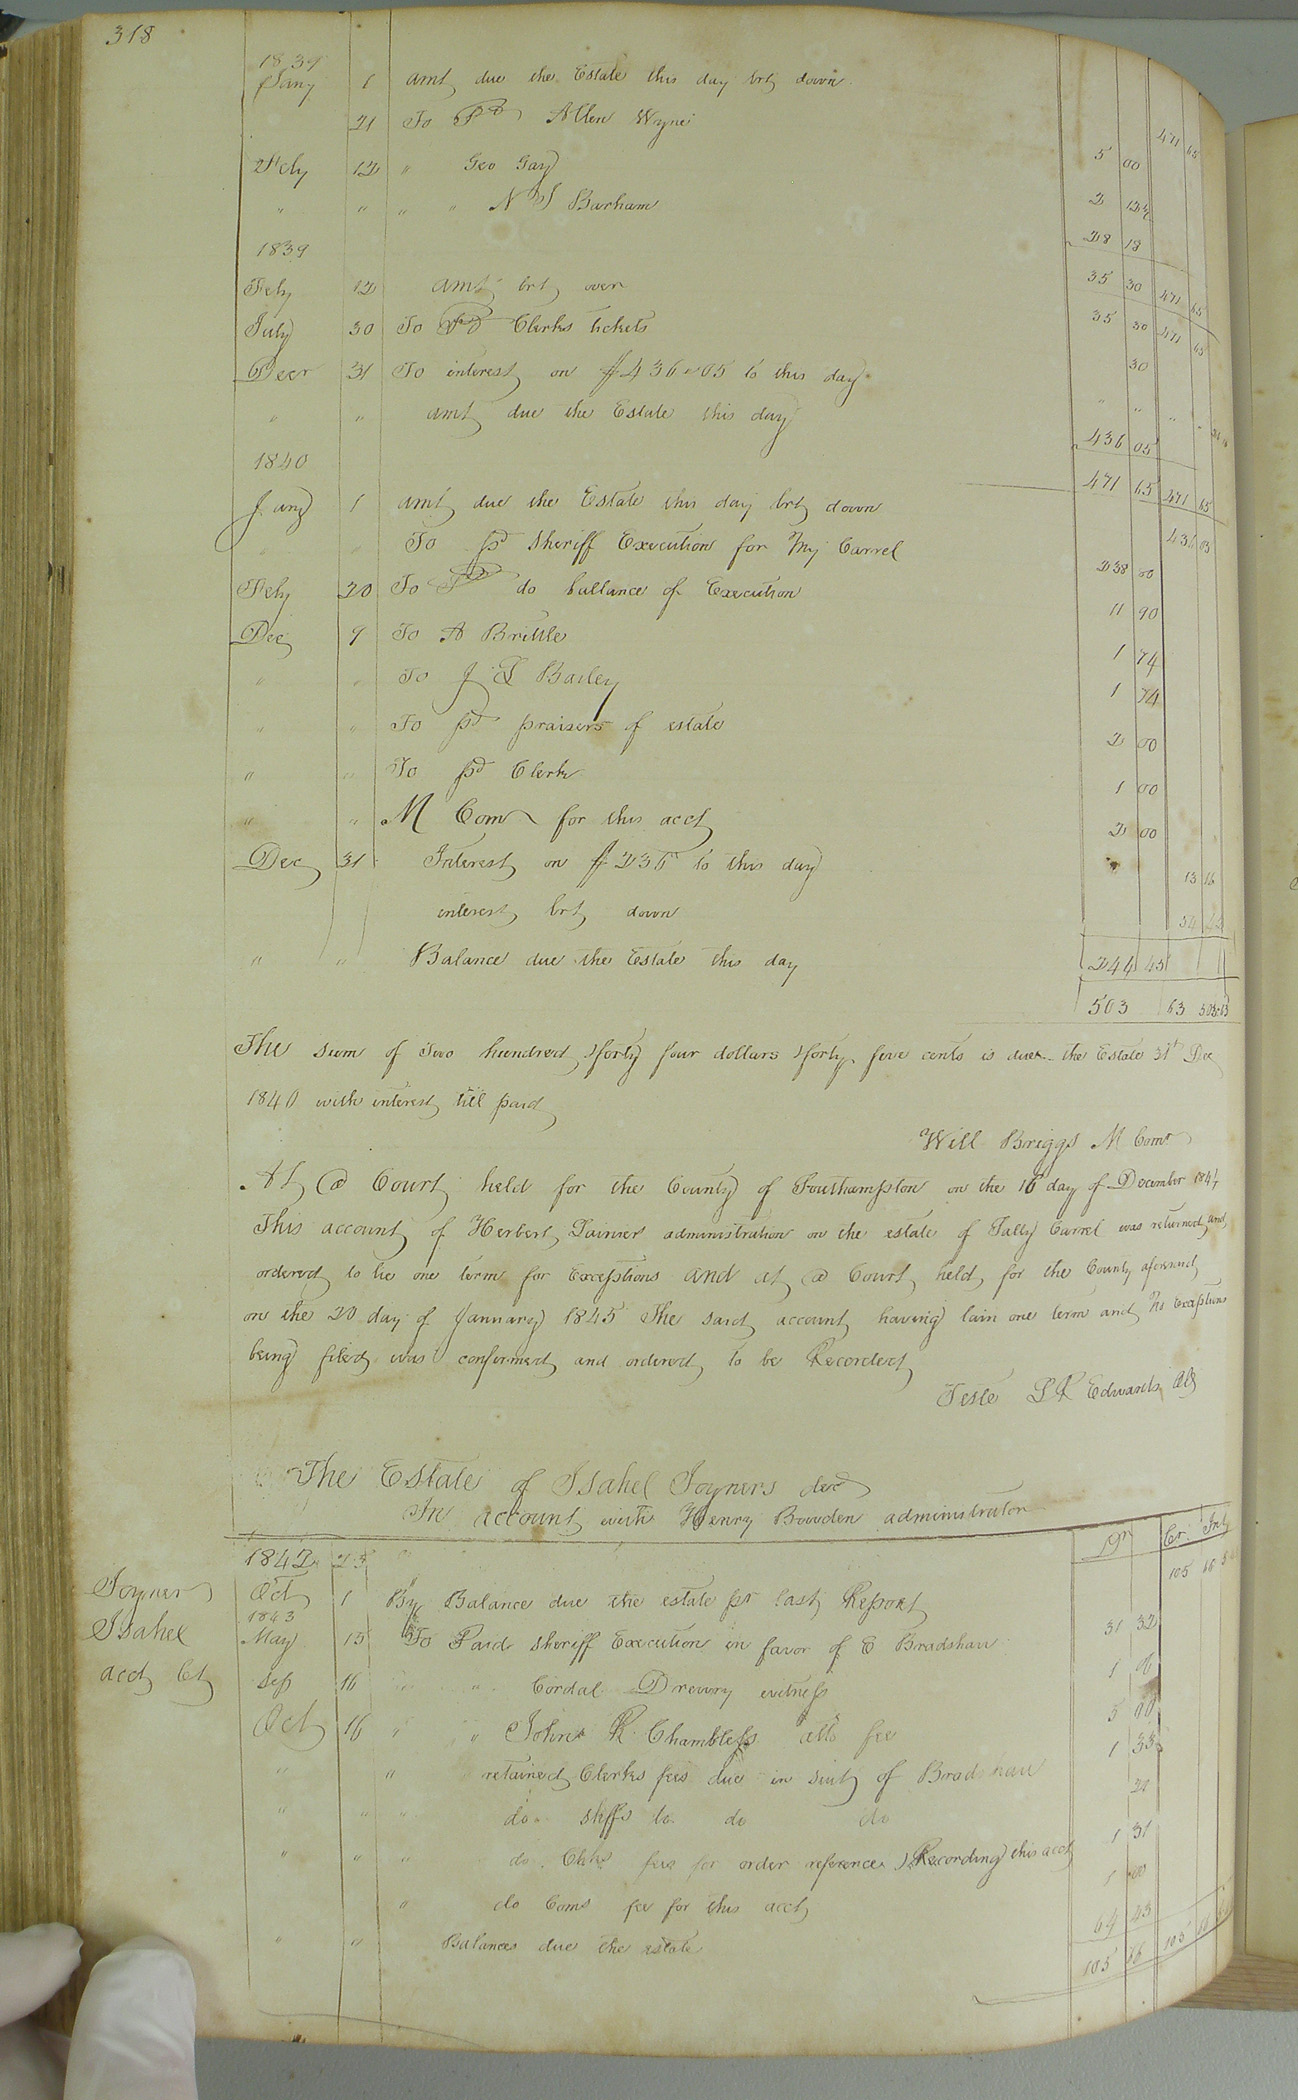 318
1839
Jany 1 amt due the Estate this day brt down 471 65
21 To Pd Allen Wyne 5 00
Feby 12 " Geo Gay 2 12½
" " " " N S Barham 28 18
1839
Feby 12 amt brt over 35 30 471 65
July 30 To Pd Clerks tickets 35 30 471 65
Decr 31 To interest on $436.05 to this day 30
" " amt due the Estate this day 436 05
1840 471 65 471 65
Jany 1 amt due the Estate this day brt down 436 05
" " To pd Sheriff Execution for My Carrel 238 00
Feby 20 To Pd do ballance of Execution 11 90
Dec 9 To A Brittle 1 74
" " To J Bailey 1 74
" " To pd praisers of estate 2 00
" " To pd Clerk 1 00
" " M Com for this acct 2 00
Dec 31 Interest on $236 to this day 13 16
interest brt down 54
" " Balance due the Estate this day 244 45
503 63 503 63
The sum of Two hundred & forty four dollars & forty five cents is due the Estate 31st Dec
1840 with interest till paid
Will Briggs M Comr
At a Court held for the County of Southampton on the 16 day of December 1844
This account of Herbert Lainers administration on the estate of Tally Carrel was returned and
ordered to lie one term for Exceptions and at a Court held for the County aforesaid
on the 20 day of January 1845 The said account having lain one term and no Exceptions
being filed was confirmed and ordered to be Recorded
Teste L R Edwards Clk
The Estate of Isabel Joyners decd
In account with Henry Bowden administrator
1842 Dr Cr Int
Joyner Oct 1 By Balance due the estate pr last Report 105 66
1843
Isabel May 15 To Paid Sheriff Execution in favor of E Bradshaw 31 32
acct Ct Sep 16 " " Cordal Drewry witness 1 06
Oct 16 " " John R Chambless atto fee 5 00
" " retained Clerks fees due in suit of Bradshaw 1 33
" " " do shffs to do do 21
" " " do Clks fees for order reference & Recording this acct 1 31
" do Coms fee for this acct 1 00
" " Balances due the estate 64 43
105 66 105 66